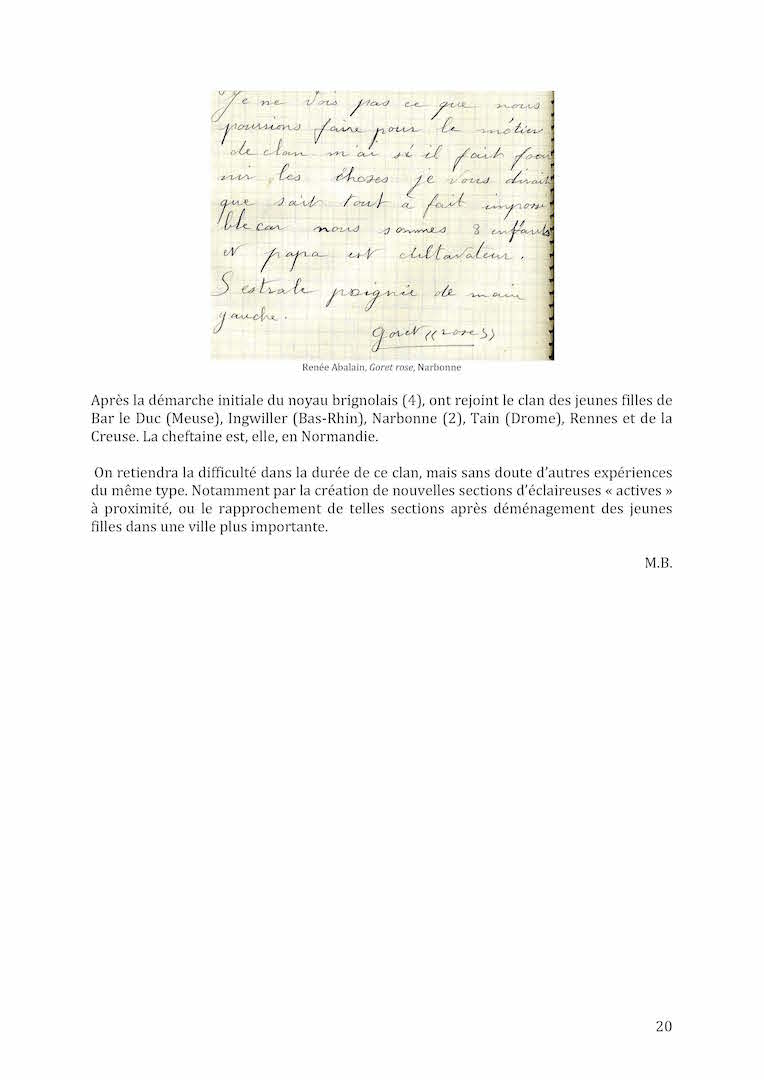 Je ne vois pas ce que nous
poursions faire pour le métier
de clan m'ai si il fait four
nir les choses je vous dirait
que sait tout à fait impossi
ble car nous sommes 8 enfants
et papa est
S estrale poignie de main
gauche.
goret ((rose))
Renée Abalain, Goret rose, Narbonne
Après la démarche initiale du noyau brignolais (4), ont rejoint le clan des jeunes filles de
Bar le Duc (Meuse), Ingwiller (Bas-Rhin), Narbonne (2), Tain (Drome), Rennes et de la
Creuse. La cheftaine est, elle, en Normandie.
On retiendra la difficulté dans la durée de ce clan, mais sans doute d'autres expériences
du même type. Notamment par la création de nouvelles sections d'éclaireuses « actives »
à proximité, ou le rapprochement de telles sections après déménagement des jeunes
filles dans une ville plus importante.
M.B.
20